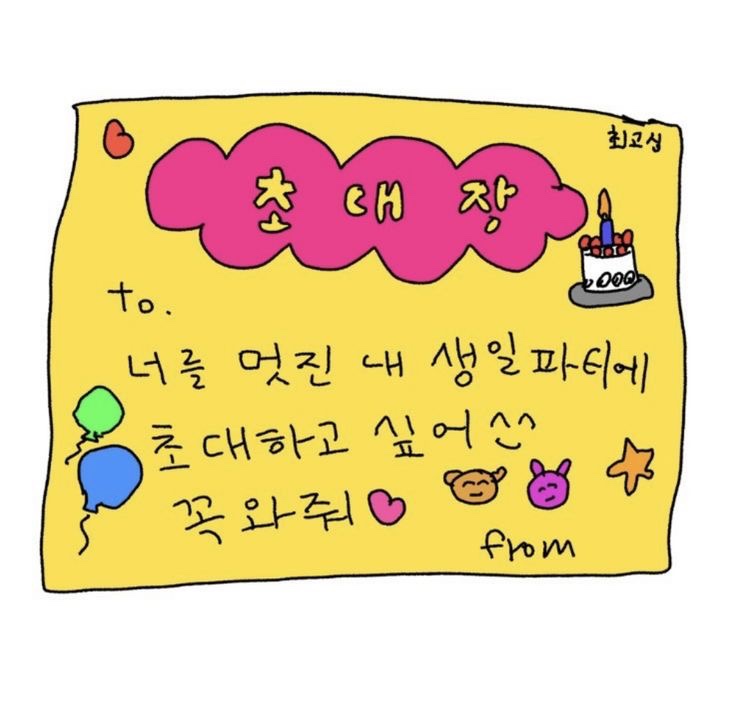 최고심
초대장
to.
너를 멋진 내 생일파티에
초대하고 싶어^^
꼭 와줘
from